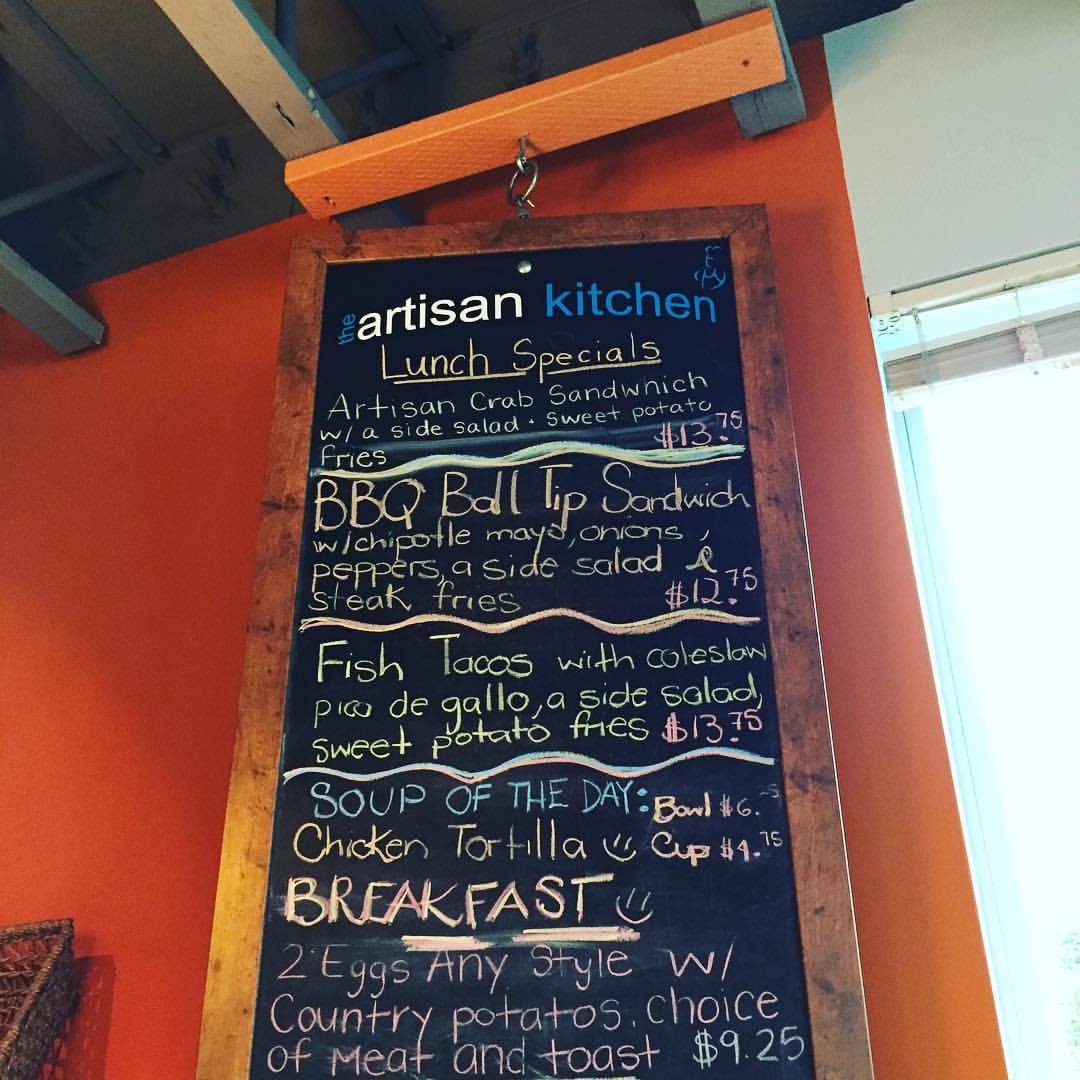 the artisan kitchen
Lunch Specials
Artisan Crab Sandwhich
w/ a side salad + sweet potato
fries $13.75
BBQ Ball Tip Sandwich
w/chipotle mayo, onions,
peppers, a side salad &
steak fries $12.75
Fish Tacos with coleslaw
pico de gallo, a side salad,
sweet potato fries $13.75
SOUP OF THE DAY: Bowl $6.
Chicken Tortilla Cup $4.75
BREAKFAST
2 Eggs Any Style w/
Country potatos, choice
of Meat and toast $9.25